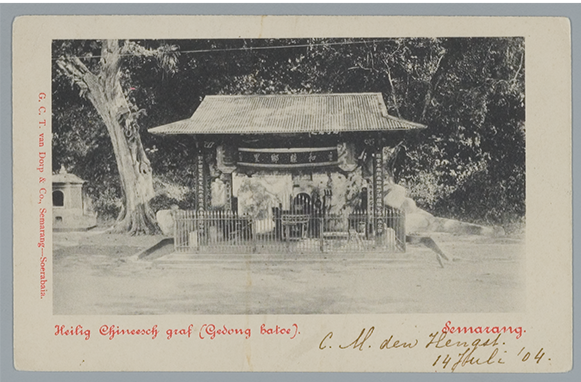 G. C. T. van Dorp & Co., Semarang—Soerabaia.
Heilig Chineesch graf (Gedong batoe).
Semarang.
C. M. den Hengst.
14 Juli '04.